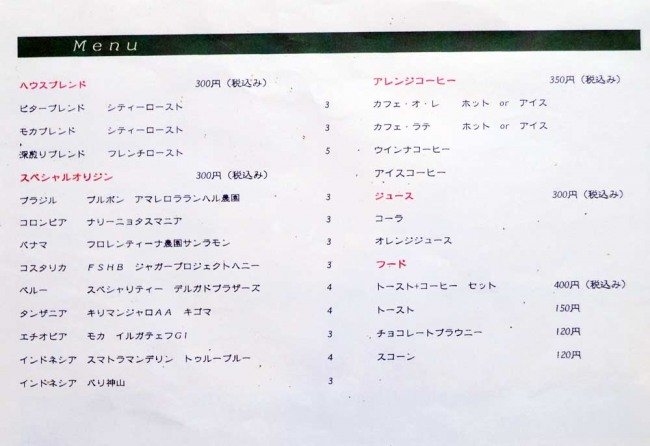 Menu
ハウスブレンド 300円（税込み）
ビターブレンド シティーロースト 3
モカブレンド シティーロースト 3
深煎りブレンド フレンチロースト 5
スペシャルオリジン 300円（税込み）
ブラジル ブルボン アマレロラランハル農園 3
コロンビア ナリーニョタスマニア 3
パナマ フロレンティーナ農園サンラモン 3
コスタリカ FSHB ジャガープロジェクトハニー 3
ペルー スペシャリティー デルガドブラザーズ 4
タンザニア キリマンジャロAA キゴマ 4
エチオピア モカ イルガテェフG1 3
インドネシア スマトラマンデリン トゥルーブルー 4
インドネシア バリ神山 3
アレンジコーヒー 350円（税込み）
カフェ・オ・レ ホット or アイス
カフェ・ラテ ホット or アイス
ウインナコーヒー
アイスコーヒー
ジュース 300円（税込み）
コーラ
オレンジジュース
フード
トースト+コーヒー セット 400円（税込み）
トースト 150円
チョコレートブラウニー 120円
スコーン 120円